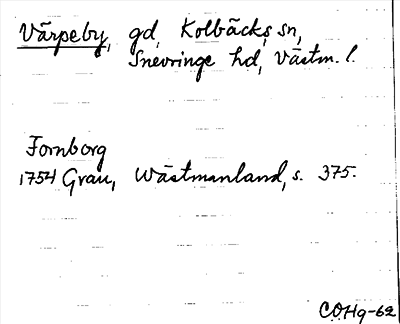 Värpeby, gd, Kolbäcks sn,
Snevringe hd, Västm. l.
Fornborg
1754 Grau, Wästmanland, s. 375.
COHg-62